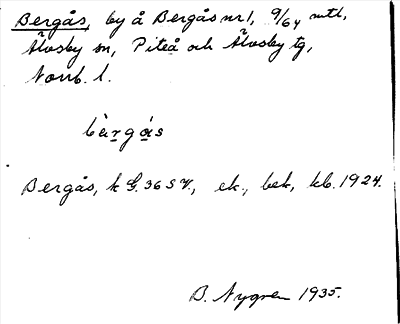 Bergås, by å Bergås nr 1, 9/64 mtl,
Älvsby sn, Piteå och Älvsby tg,
Norrb. l.
bàrgás
Bergås, k G. 36 S V., ek., bek, kb. 1924.
B. Nygren 1935.